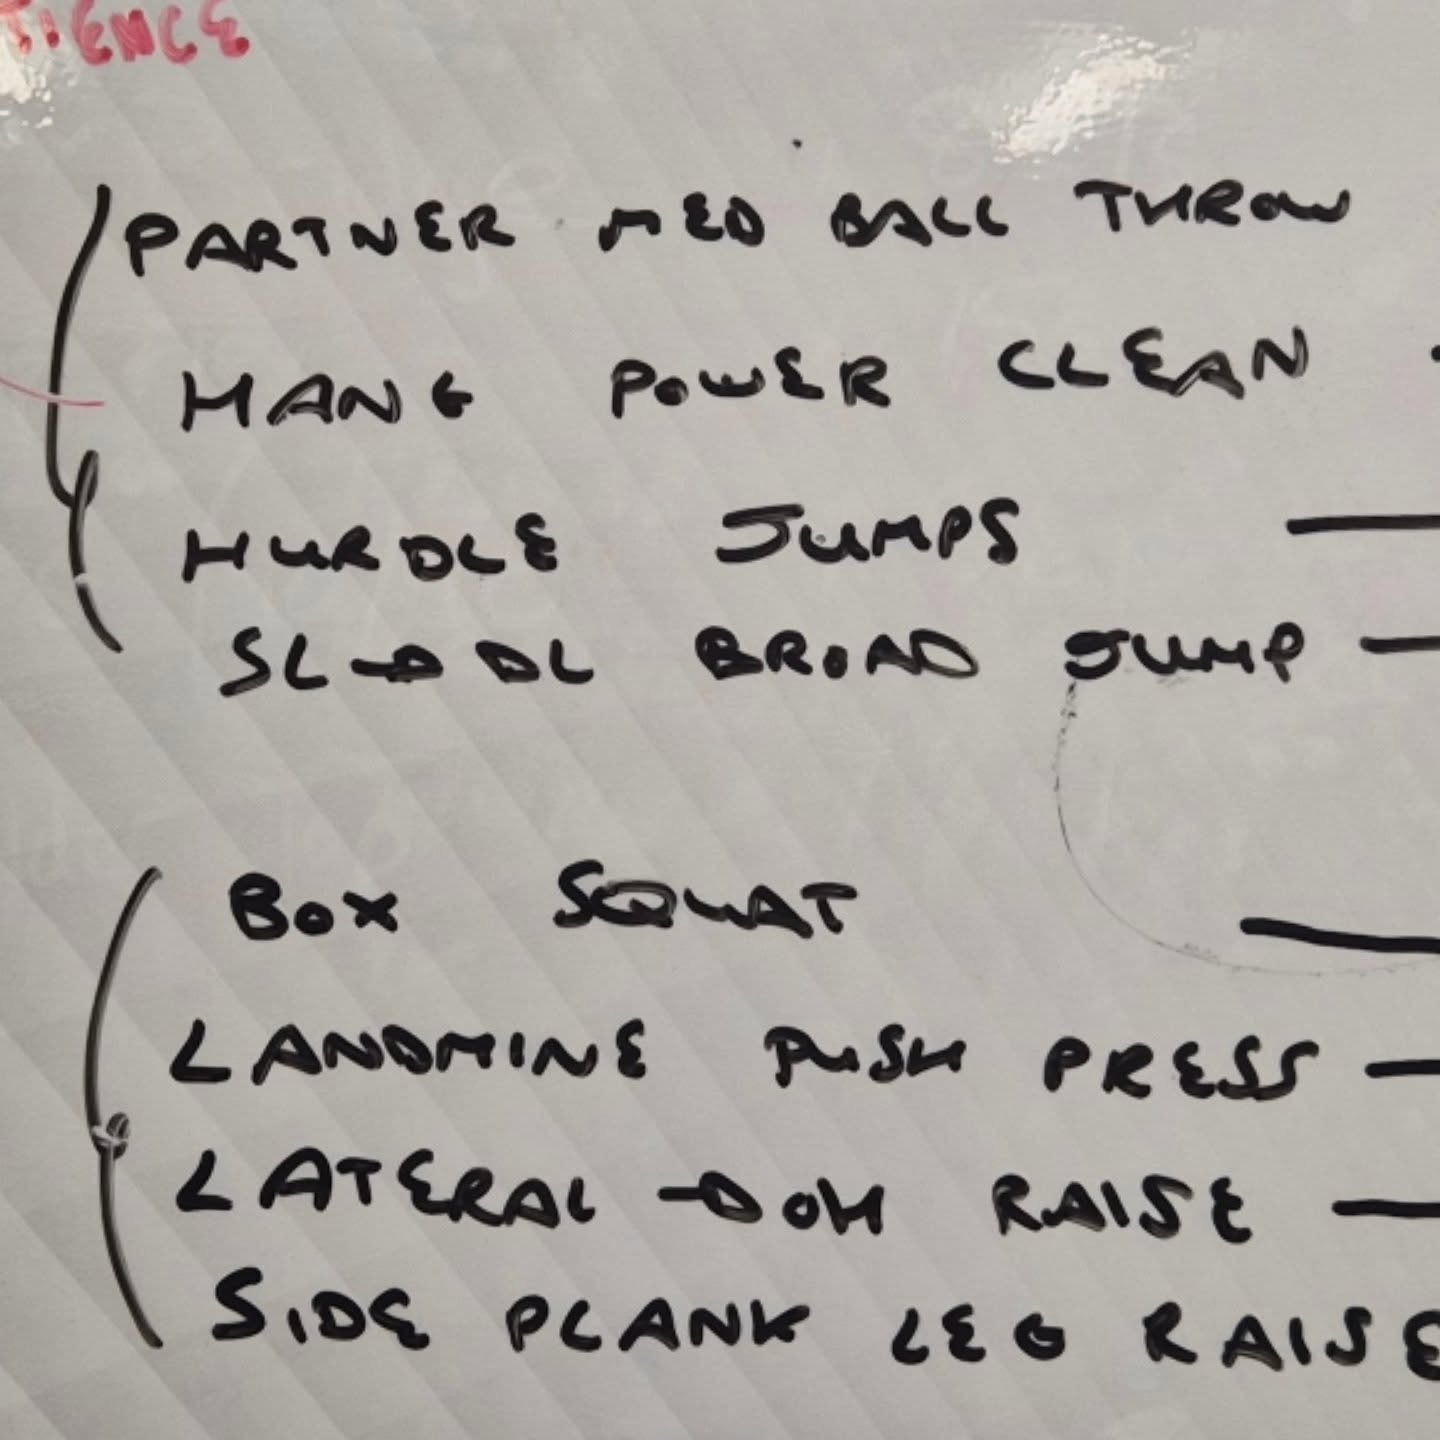 PARTNER MED BALL THROW
HANG POWER CLEAN
HURDLE JUMPS —
SL → DL BROAD JUMP —
BOX SQUAT —
LANDMINE PUSH PRESS —
LATERAL → OH RAISE —
SIDE PLANK LEG RAISE